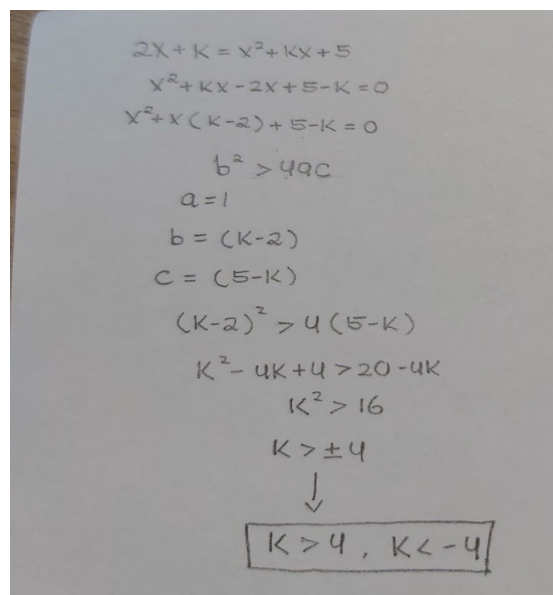 2x + K = x² + Kx + 5
x² + Kx - 2x + 5 - K = 0
x² + x (K-2) + 5-K = 0
b² > 4ac
a = 1
b = (K-2)
c = (5-K)
(K-2)² > 4 (5-K)
K² - 4K + 4 > 20 - 4K
K² > 16
K > ± 4
↓
K > 4 , K < -4